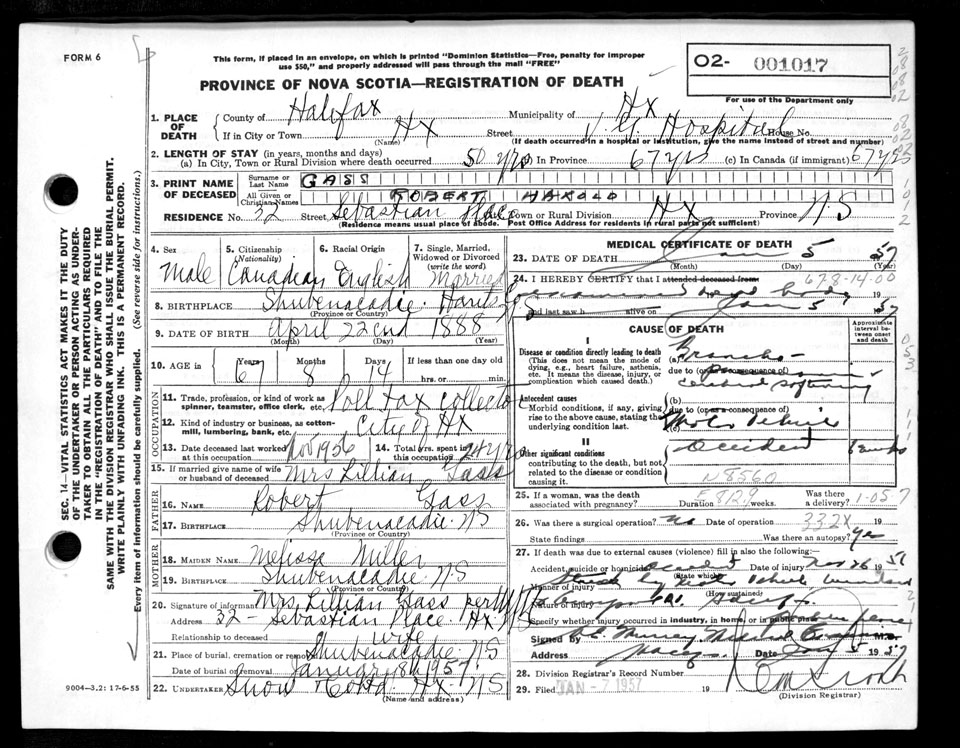 FORM 6
This form, if placed in an envelope, on which is printed "Dominion Statistics—Free, penalty for improper
use $50," and properly addressed will pass through the mail "FREE"
PROVINCE OF NOVA SCOTIA—REGISTRATION OF DEATH
O2- 001017
For use of the Department only
1. PLACE OF DEATH
County of Halifax Municipality of Hx
If in City or Town Hx Street V.G. Hospital House No.
(Name) (If death occurred in a hospital or institution, give the name instead of street and number)
2. LENGTH OF STAY (in years, months and days)
(a) In City, Town or Rural Division where death occurred 50 yrs (b) In Province 67 yrs (c) In Canada (if immigrant) 67 yrs
3. PRINT NAME OF DECEASED
Surname or Last Name GASS
All Given or Christian Names ROBERT HAROLD
RESIDENCE No. 32 Street Sebastian Place Town or Rural Division Hx Province N S
(Residence means usual place of abode. Post Office Address for residents in rural parts not sufficient)
4. Sex Male
5. Citizenship (Nationality) Canadian
6. Racial Origin English
7. Single, Married, Widowed or Divorced (write the word) Married
8. BIRTHPLACE Shubenacadie Hants N S
(Province or Country)
9. DATE OF BIRTH April 22nd 1888
(Month) (Day) (Year)
10. AGE in Years 67 Months 8 Days 14 If less than one day
hrs. or min.
OCCUPATION
11. Trade, profession, or kind of work as spinner, teamster, office clerk, etc. Poll Tax collector
12. Kind of industry or business, as cotton-mill, lumbering, bank, etc. City of Hx
13. Date deceased last worked at this occupation Nov 1956
14. Total yrs. spent in this occupation 24 yrs
15. If married give name of wife or husband of deceased Mrs Lillian Gass
FATHER
16. NAME Robert Gass
17. BIRTHPLACE Shubenacadie N S
(Province or Country)
MOTHER
18. MAIDEN NAME Melissa Miller
19. BIRTHPLACE Shubenacadie N S
(Province or Country)
20. Signature of informant Mrs Lillian Gass per
Address 32 - Sebastian Place Hx N S
Relationship to deceased wife
21. Place of burial, cremation or removal Shubenacadie N S
Date of burial or removal January 8th 1957
22. UNDERTAKER Snow Hx N S
(Name and address)
9004—3.2: 17-6-55
MEDICAL CERTIFICATE OF DEATH
23. DATE OF DEATH Jan 5 57
(Month) (Day) (Year)
24. I HEREBY CERTIFY that I attended deceased from 678-14-00
19
and last saw h alive on Jan 5 57
CAUSE OF DEATH
Approximate interval between onset and death
I
Disease or condition directly leading to death
(This does not mean the mode of dying, e.g., heart failure, asthenia, etc. It means the disease, injury, or complication which caused death.)
(a) Broncho-
due to (or as a consequence of)
cerebral softening
Antecedent causes
Morbid conditions, if any, giving rise to the above cause, stating the underlying condition last.
(b)
due to (or as a consequence of)
(c) Motor Vehicle
II
Other significant conditions
contributing to the death, but not related to the disease or condition causing it.
accident
N8560
E 8129
25. If a woman, was the death associated with pregnancy? Duration weeks. Was there a delivery? 1-057
26. Was there a surgical operation? no Date of operation 332X 19
State findings Was there an autopsy? yes
27. If death was due to external causes (violence) fill in also the following:—
Accident, suicide or homicide accident Date of injury Nov 26 1956
(State which)
Manner of injury Struck by Motor Vehicle
(How sustained)
Nature of injury
Specify whether injury occurred in industry, in home, or in public place
Signed by Murray Medical M.D.
Address Date Jan 5 1957
28. Division Registrar's Record Number
29. Filed JAN - 7 1957 19
(Division Registrar)
SEC. 14—VITAL STATISTICS ACT MAKES IT THE DUTY
OF THE UNDERTAKER OR PERSON ACTING AS UNDER-
TAKER TO OBTAIN ALL THE PARTICULARS REQUIRED
IN THE "REGISTRATION OF DEATH" AND TO FILE THE
SAME WITH THE DIVISION REGISTRAR WHO SHALL ISSUE THE BURIAL PERMIT.
WRITE PLAINLY WITH UNFADING INK. THIS IS A PERMANENT RECORD.
Every item of information should be carefully supplied. (See reverse side for instructions.)